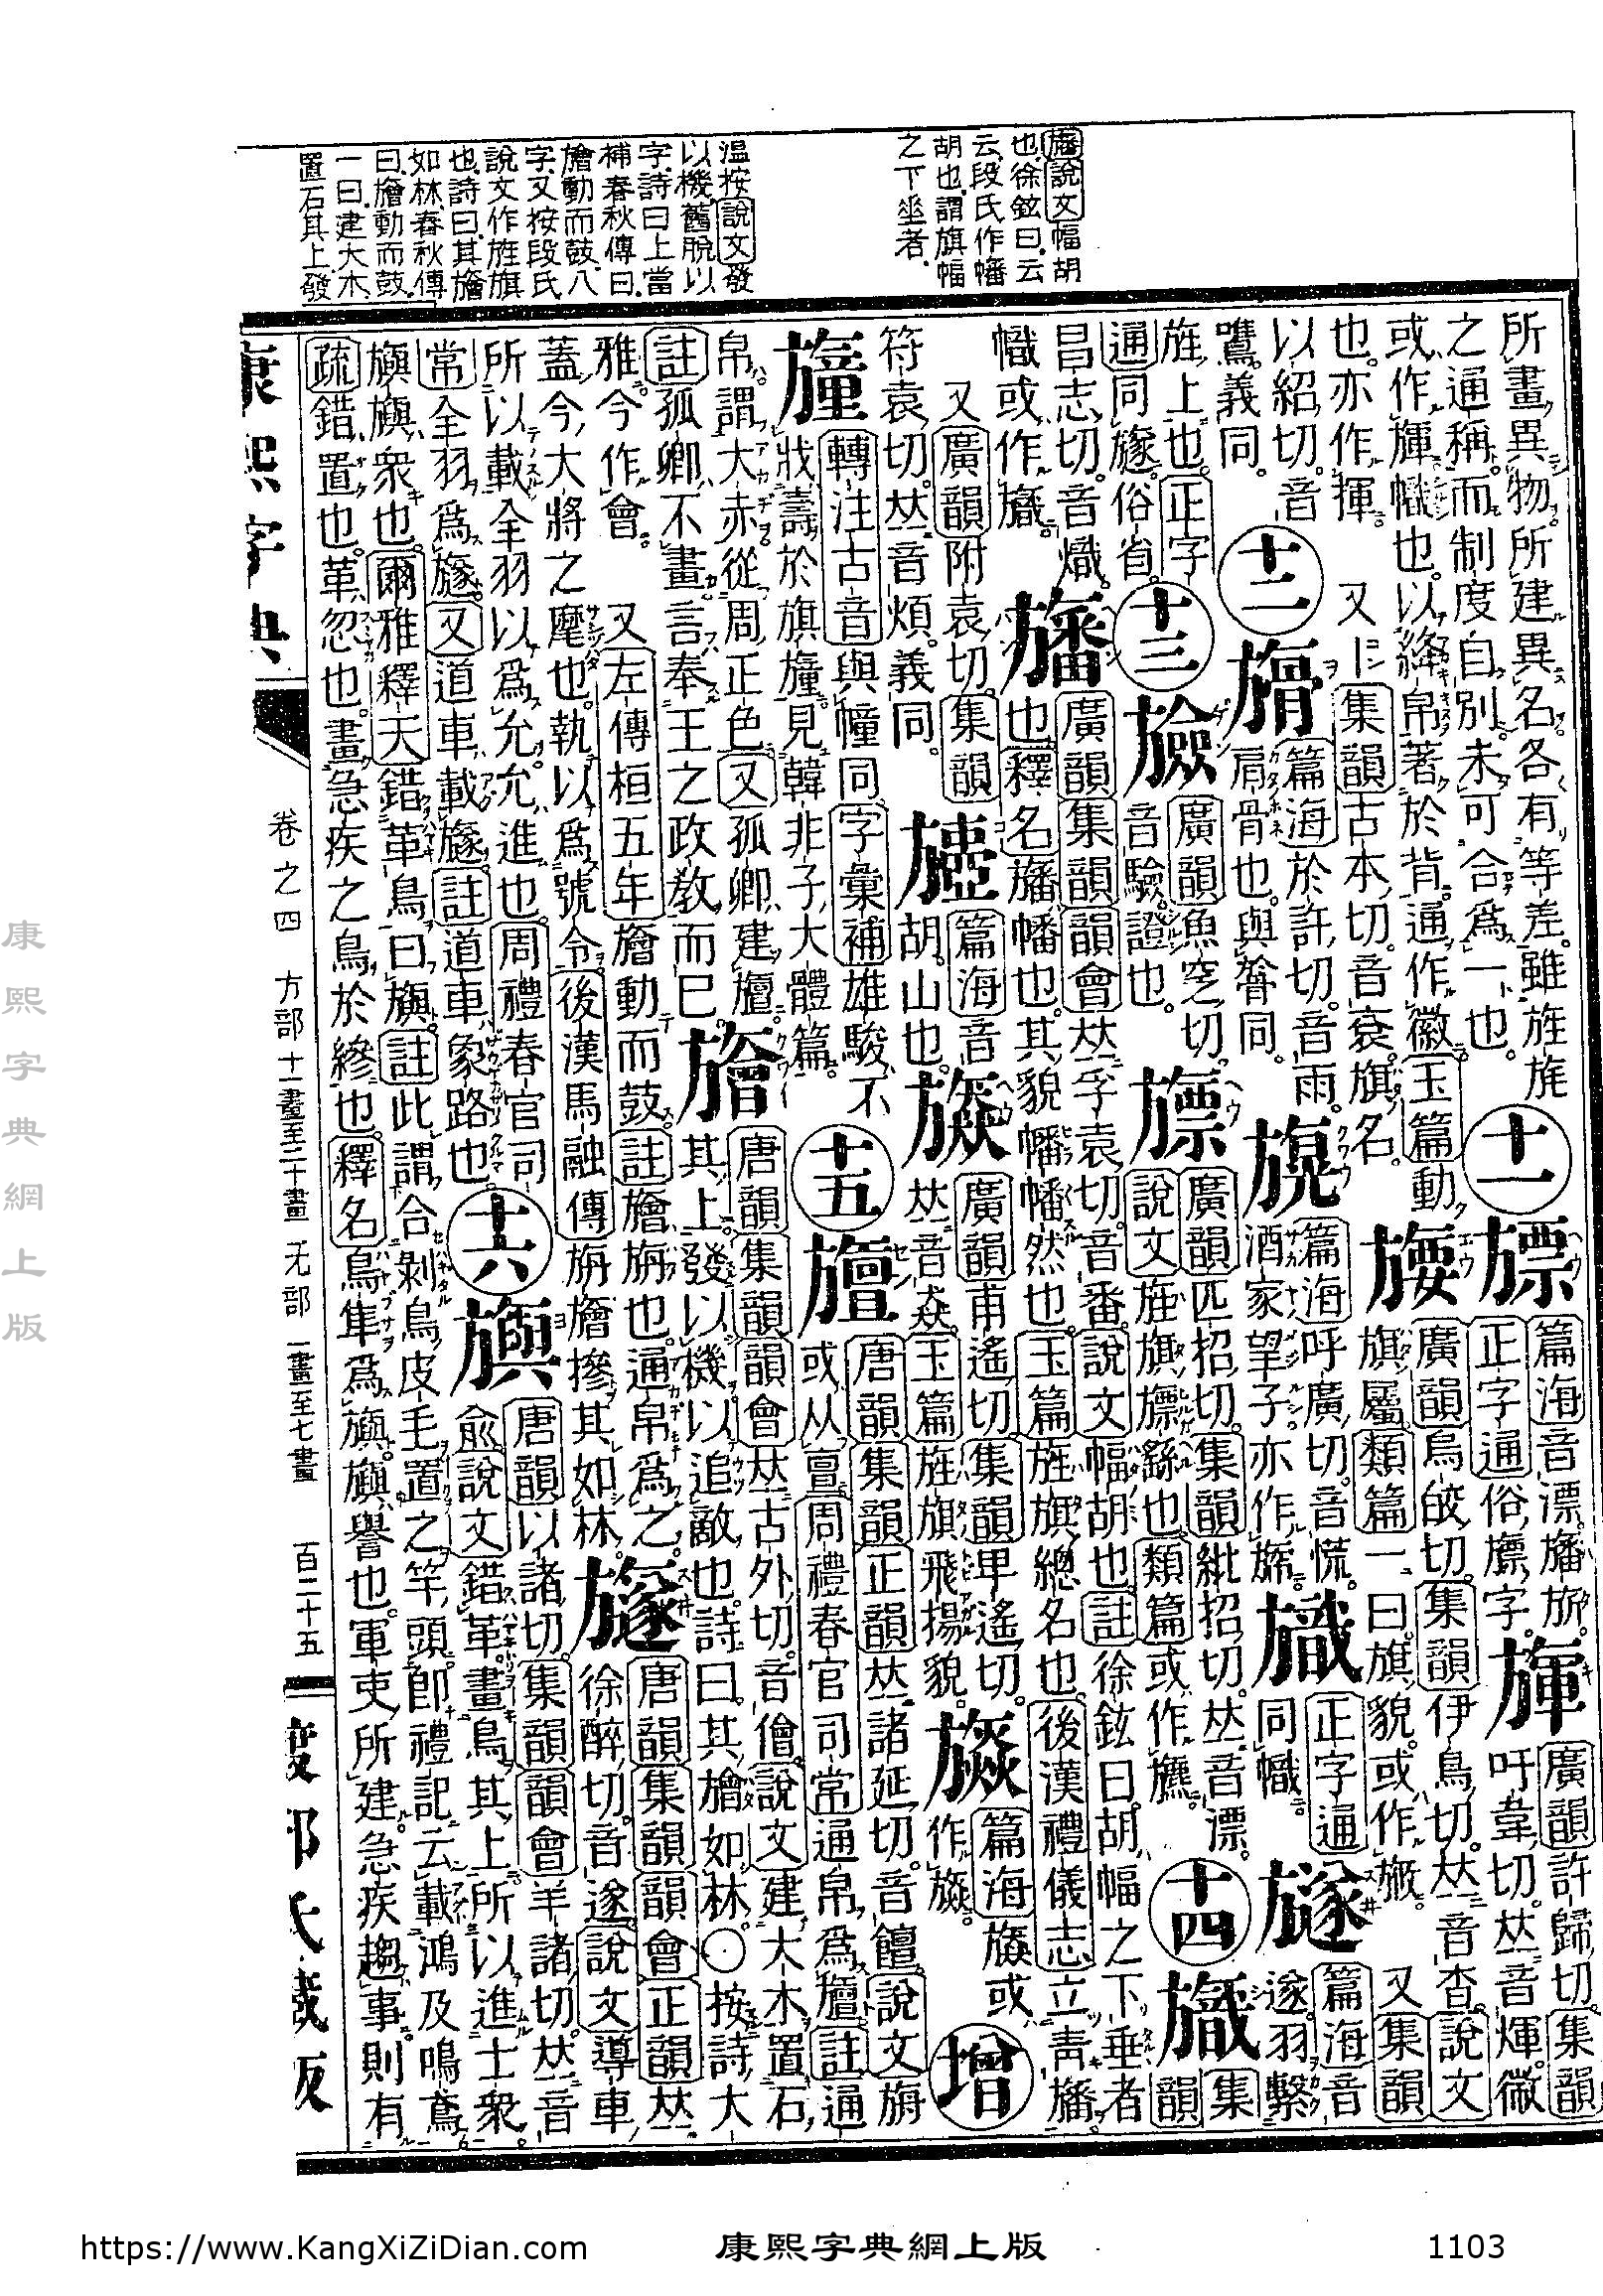 旛說文幅胡
也徐鉉曰云
云段氏作幡
胡也謂旗幅
之下垂者
温按說文發
以機舊脫以
字詩曰上當
補春秋傳曰
旝動而鼓八
字又按段氏
說文作旌旗
也詩曰其旝
如林春秋傳
曰旝動而鼓
一曰建大木
置石其上發
所畫異物所建異名各有等差雖旌旄
之通稱而制度自別未可合爲一也。
十一
旚
篇海音漂旛旂。
正字通俗旚字。
廣韻許歸切集韻
吁韋切。𠀤音煇。微
或作幟也。以絳帛著於背。通作徽玉篇動
也。亦作揮。又集韻古本切。音衮。旗名。
廣韻烏皎切。集韻伊鳥切。𠀤音杳。說文
旗屬類篇一曰旗貌。或作 又集韻
以紹切。音
鷕。義同。
十二
篇海於許切。音雨。
肩骨也。與膂同。
篇海呼廣切。音慌。
酒家望子。亦作
旘
正字通
同幟。
旞
篇海音
遂。羽繫
旌上也。正字
通同旞。俗省。
十三
廣韻魚窆切。
音驗。證也。
旚
廣韻匹招切。集韻紕招切。𠀤音漂。
說文旌旗旚繇也。類篇或作
十四
旘
集韻
昌志切。音熾。
幟或作旘。
旛
廣韻集韻韻會𠀤孚袁切。音番。說文幅胡也。註徐鉉曰胡幅之下垂者
也。釋名旛幡也。其貌幡幡然也。玉篇旌旗總名也。後漢禮儀志立靑旛。
又廣韻附袁切。集韻
符袁切。𠀤音煩。義同。
篇海音
胡。山也。
廣韻甫遙切。集韻卑遙切。
𠀤音猋。玉篇旌旗飛揚貌。
篇海 或
作
增
轉注古音與幢同。字彙補雄駿不
戕壽於旗 見韓非子大體篇。
十五
旜
唐韻集韻正韻𠀤諸延切。音饘。說文旃
或从亶周禮春官司常通帛爲旜註通
帛謂大赤從周正色。又孤卿建旜
註孤卿不畫言奉王之政敎而已
旝
唐韻集韻韻會𠀤古外切。音儈。說文建大木置石
其上發以機以追敵也。詩曰其旝如林。○按詩大
雅今作會。又左傳桓五年旝動而鼓。註旝旃也。通帛爲之。
蓋今大將之麾也。執以爲號令。後漢馬融傳旃旝摻其如林。
旞
唐韻集韻韻會正韻𠀤
徐醉切。音遂。說文導車
所以載全羽以爲允。允進也。周禮春官司
常全羽爲旞。又道車載旞。註道車象路也。
十六
旟
唐韻以諸切。集韻韻會羊諸切。𠀤音
兪。說文錯革畫鳥其上。所以進士衆。
旟旟衆也。爾雅釋天錯革鳥曰旟。註此謂合剝鳥皮毛置之竿頭。卽禮記云載鴻及鳴鳶
疏錯置也。革忽也。畫急疾之鳥於縿也。釋名鳥隼爲旟。旟譽也。軍吏所建。急疾趨事。則有
康熙字典
卷之四 方部 十一畫至二十畫 无部 一畫至七畫 百二十五
渡部氏藏版
康熙字典網上版
https://www.KangXiZiDian.com
康熙字典網上版
1103